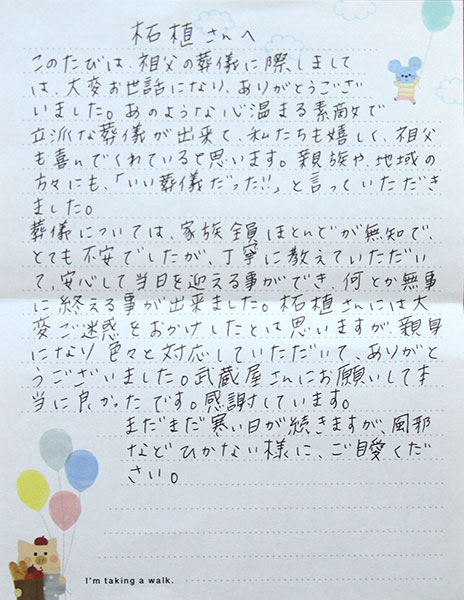 柘植さんへ
このたびは、祖父の葬儀に際しまして
は、大変お世話になり、ありがとうござ
いました。あのような心温まる素敵で
立派な葬儀が出来て、私たちも嬉しく、祖父
も喜んでくれていると思います。親族や、地域の
方々にも、「いい葬儀だった!!」と言っていただき
ました。
葬儀については、家族全員ほとんどが無知で、
とても不安でしたが、丁寧に教えていただい
て、安心して当日を迎える事ができ、何とか無事
に終える事が出来ました。柘植さんには大
変ご迷惑をおかけしたとは思いますが、親身
になり色々と対応していただいて、ありがと
うございました。武蔵屋さんにお願いして本
当に良かったです。感謝しています。
まだまだ寒い日が続きますが、風邪
などひかない様に、ご自愛くだ
さい。
I'm taking a walk.